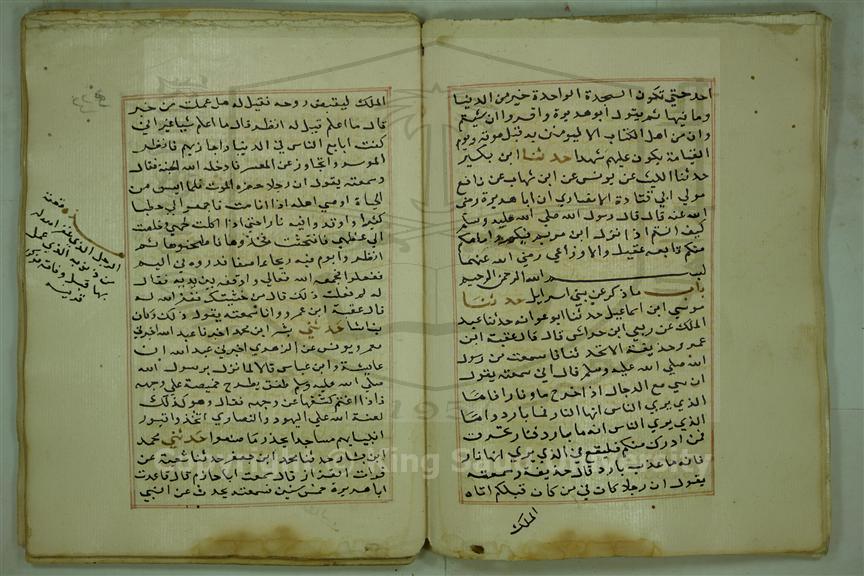 احد حتي تكون السجدة الواحدة خير من الدنيا
وما فيها ثم يقول ابو هريرة واقروا ان شيتم
وان من اهل الكتاب الا ليومنن به قبل موته ويوم
القيامة يكون عليهم شهيدا حدثنا ابن بكير
حدثنا الليث عن يونس عن ابن شهاب عن نافع
مولي ابي قتادة الانصاري ان ابا هريرة رضي
الله عنه قال قال رسول الله صلي الله عليه وسلم
كيف انتم اذا نزل ابن مريم فيكم وامامكم
منكم تابعه عقيل والاوزاعي رضي الله عنهما
بسم الله الرحمن الرحيم
باب ما ذكر عن بني اسرايل حدثنا
موسي ابن اسماعيل حدثنا ابو عوانة حدثنا عبد
الملك عن ربعي ابن حراش قال قال عقبة ابن
عمرو حذيفة الا تحدثنا ما سمعت من رسول
الله صلي الله عليه وسلم قال اني سمعته يقول
ان مع الدجال اذا خرج ما ونارا فاما
الذي يري الناس انها النار فما بارد واما
الذي يري الناس انه ما بارد فنار تحرق
فمن ادرك منكم فليقع في الذي يري انها نار
فانه ما عذب بارد قال حذيفة وسمعته
يقول ان رجلا كان في من كان قبلكم اتاه
الملك
الملك ليقبض روحه فقيل له هل عملت من خير
قال ما اعلم قيل له انظر قال ما اعلم شيا غير اني
كنت ابايع الناس في الدنيا واجازيهم فانظر
الموسر واتجاوز عن المعسر فادخله الله الجنة فقال
وسمعته يقول ان رجلا حضره الموت فلما ايس من
الحياة اوصي اهله اذا انا مت فاجمعوا لي حطبا
كثيرا واوقدوا فيه نارا حتي اذا اكلت لحمي وخلصت
الي عظمي فامتحشت فخذوها فاطحنوها ثم
انظروا يوم فيه ريحا فاذروه في اليم
ففعلوا فجمعه الله تعالي واوقفه بين يديه فقال
له لم فعلت ذلك قال من خشيتك فغفر الله له
قال عقبة ابن عمرو وانا سمعته يقول ذلك وكان
نباشا حدثني بشر ابن محمد اخبرنا عبد الله اخبرني
معمر ويونس عن الزهري اخبرني عبد الله ان
عايشة وابن عباس قالا لما نزل برسول الله
صلي الله عليه وسلم طفق يطرح خميصة علي وجهه
فاذا اغتم كشفها عن وجهه فقال وهو كذلك
لعنة الله علي اليهود والنصاري اتخذوا قبور
انبيايهم مساجد يحذر ما صنعوا حدثني محمد
ابن بشار حدثنا محمد ابن جعفر حدثنا شعبة عن
فرات القزاز قال سمعت ابا حازم قال قاعدت
ابا هريرة خمس سنين فسمعته يحدث عن النبي
قصة
الرجل الذي غفر الله له
من ذنوبه الذي عمل
بها قبل وفاته
Copyright © King Saud University
195